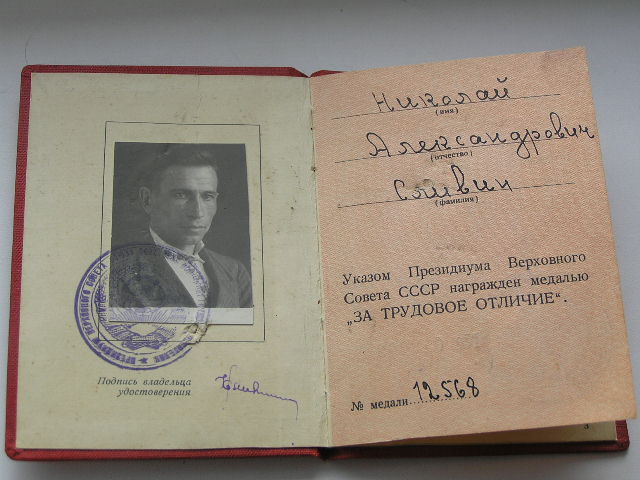 ПРЕЗИДИУМ ВЕРХОВНОГО
Подпись владельца
удостоверения
Николай
(имя)
Александрович
(отчество)
(фамилия)
Указом Президиума Верховного
Совета СССР награжден медалью
„ЗА ТРУДОВОЕ ОТЛИЧИЕ“.
№ медали 12568
3